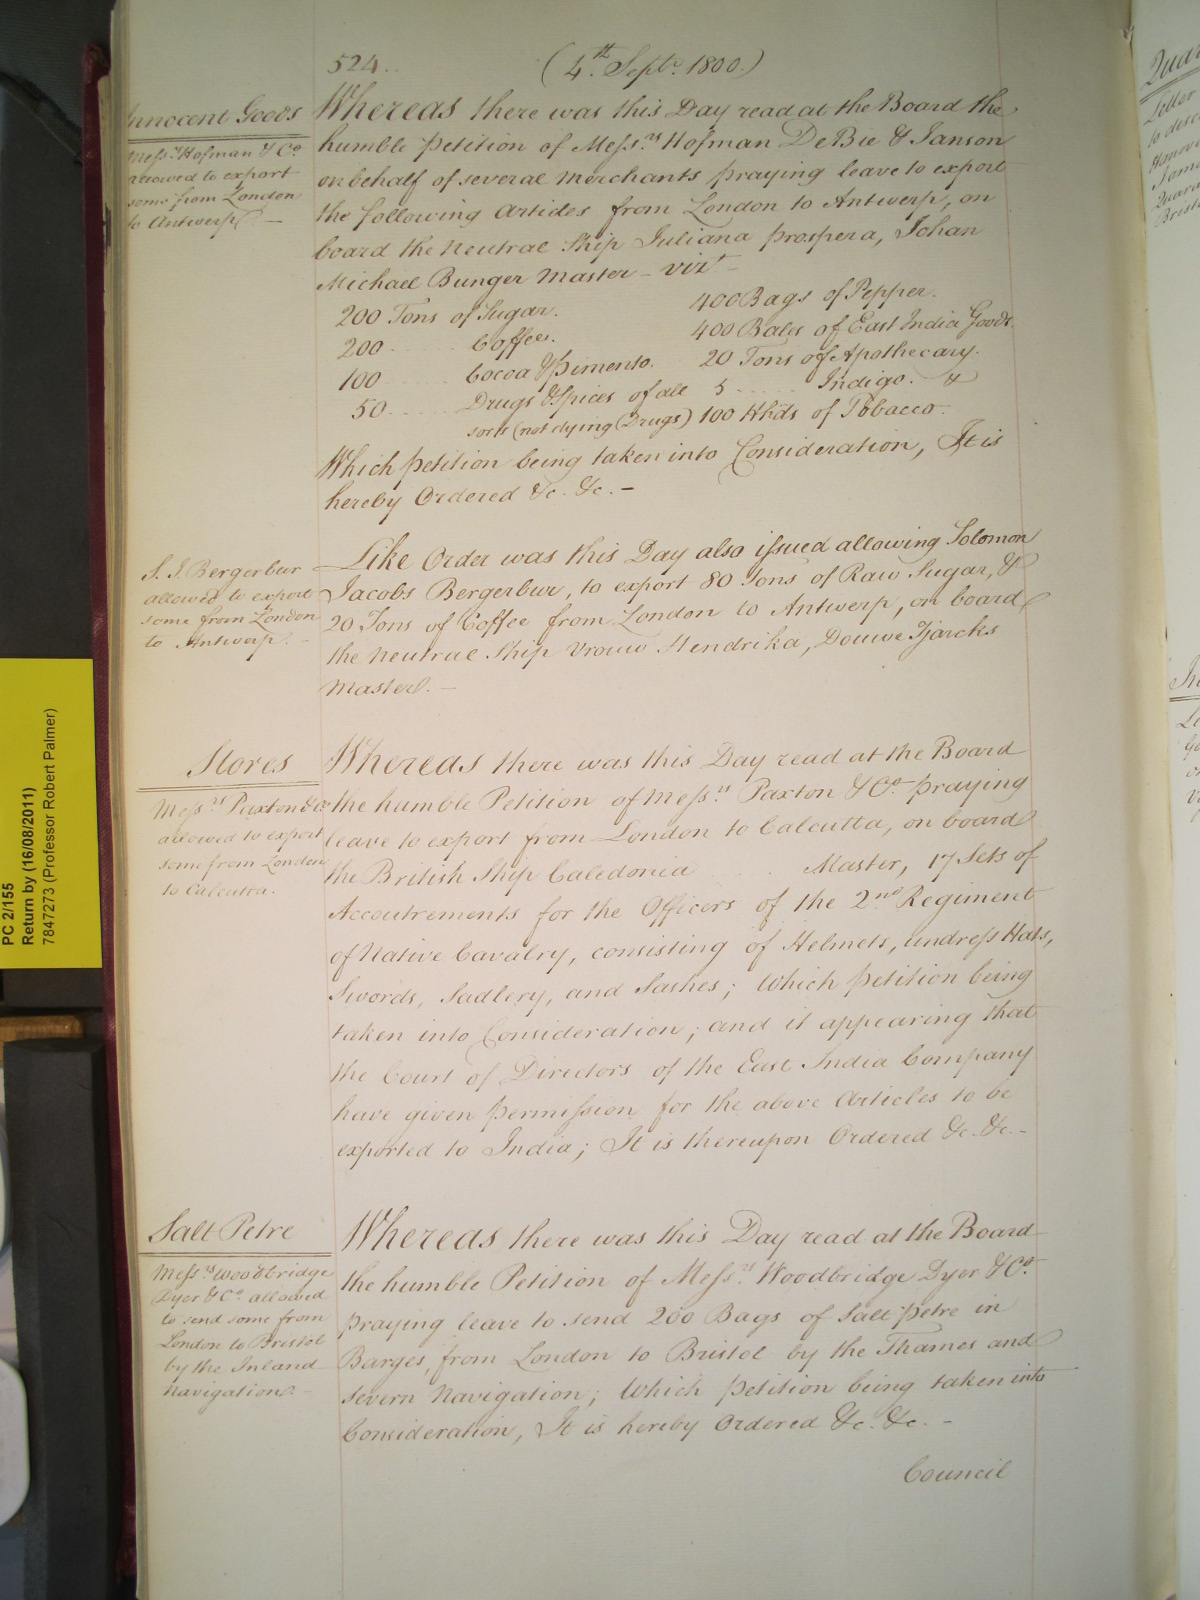 524.
(4th. Septr. 1800.)
Innocent Goods
Messrs Hofman & Co
allowed to export
some from London
to Antwerp. —
Whereas there was this Day read at the Board the
humble petition of Messrs Hofman De Bie & Janson
on behalf of several Merchants praying leave to export
the following Articles from London to Antwerp, on
board the Neutral Ship Juliana prospera, Johan
Michael Bunger Master — vizt —
200 Tons of Sugar.
200 Coffee.
100 Cocoa & Pimento.
50 Drugs & Spices of all
sorts (not dying Drugs)
400 Bags of Pepper.
400 Bales of East India Goods.
20 Tons of Apothecary.
5 Indigo. &
100 Hhds of Tobacco.
Which petition being taken into Consideration, It is
hereby Ordered &c. &c. —
S. J. Bergerbur
allowed to export
some from London
to Antwerp. —
Like Order was this Day also issued allowing Solomon
Jacobs Bergerbur, to export 80 Tons of Raw Sugar, &
20 Tons of Coffee from London to Antwerp, on board
the Neutral Ship Vrouw Hendrika, Douwe Tjarcks
Master. —
Stores
Messrs Paxton & Co
allowed to export
some from London
to Calcutta.
Whereas there was this Day read at the Board
the humble Petition of Messrs Paxton & Co praying
leave to export from London to Calcutta, on board
the British Ship Caledonia Master, 17 Sets of
Accoutrements for the Officers of the 2nd Regiment
of Native Cavalry, consisting of Helmets, undress Hats,
Swords, Sadlery, and Sashes; Which petition being
taken into Consideration; and it appearing that
the Court of Directors of the East India Company
have given permission for the above Articles to be
exported to India; It is thereupon Ordered &c. &c. —
Salt Petre
Messrs Woodbridge
Dyer & Co. allowed
to send some from
London to Bristol
by the Inland
Navigation. —
Whereas there was this Day read at the Board
the humble Petition of Messrs Woodbridge Dyer & Co.
praying leave to send 200 Bags of Salt petre in
Barges, from London to Bristol by the Thames and
Severn Navigation; Which petition being taken into
Consideration, It is hereby Ordered &c. &c. —
Council
PC 2/155
Return by (16/08/2011)
7847273 (Professor Robert Palmer)